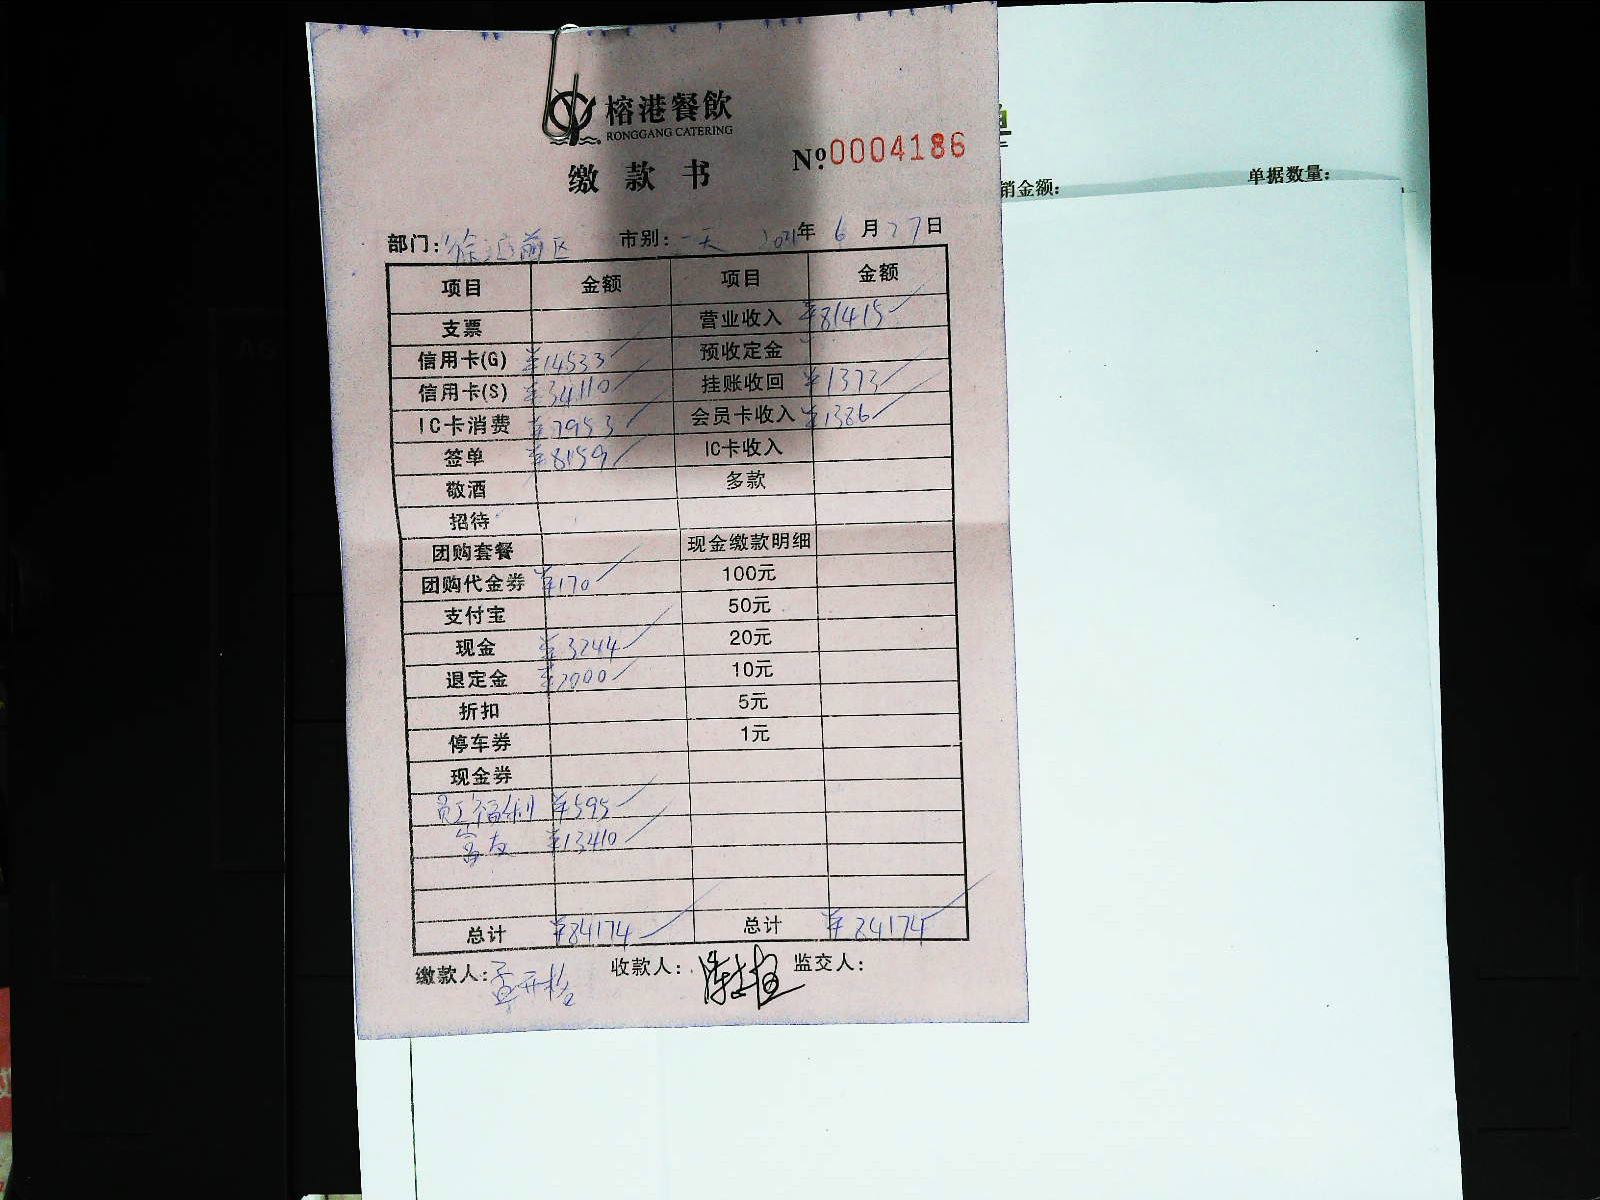 榕港餐飲
RONGGANG CATERING
缴款书 №0004186
销金额: 单据数量:
部门:徐汇前区 市别:一天 2021年6月27日
项目 金额 项目 金额
支票 营业收入 ¥81415
信用卡(G) ¥14533 预收定金
信用卡(S) ¥34110 挂账收回 ¥1373
IC卡消费 ¥7953 会员卡收入 ¥1386
签单 ¥8159 IC卡收入
敬酒 多款
招待
团购套餐 现金缴款明细
团购代金券 ¥170 100元
支付宝 50元
现金 ¥3244 20元
退定金 ¥2000 10元
折扣 5元
停车券 1元
现金券
员工福利 ¥595
富友 ¥13410
总计 ¥84174 总计 ¥84174
缴款人: 收款人: 监交人: